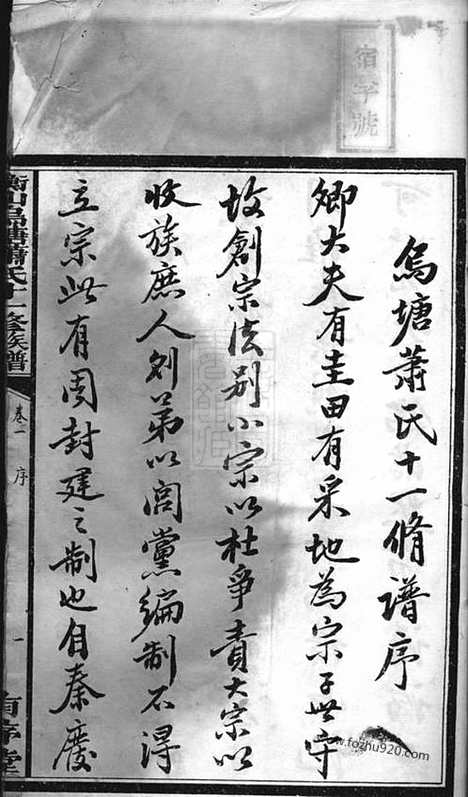 宿字號
烏塘蕭氏十一脩譜序
卿大夫有圭田有采地為宗子世守
故創宗法別小宗以杜爭責大宗以
收族庶人则第以閭黨編制不得
立宗此有周封建之制也自秦廢
衡山烏塘蕭氏十一修族譜
卷一 序
一
www.fozhu920.com